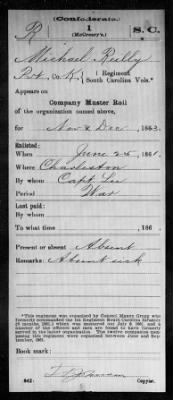 (Confederate.)
R 1 S.C.
(McCreary's)
Michael Reilly
Pvt, Co. K, 1 Regiment
South Carolina Vols.*
Appears on
Company Muster Roll
of the organization named above,
for Nov & Dec, 1863.
Enlisted:
When June 25, 1861.
Where Charleston
By whom Capt. Lee
Period War
Last paid:
By whom
To what time , 186 .
Present or absent Absent
Remarks: Absent sick
*This regiment was organized by Colonel Maxcy Gregg who
formerly commanded the 1st Regiment South Carolina Infantry
(6 months, 1861), which was mustered out July 9, 1861, and a
number of the officers and men are found to have formerly
served in the latter organization. The ten companies of this
regiment were organized between June and
September, 1861.
Book mark:
(642) Copyist.